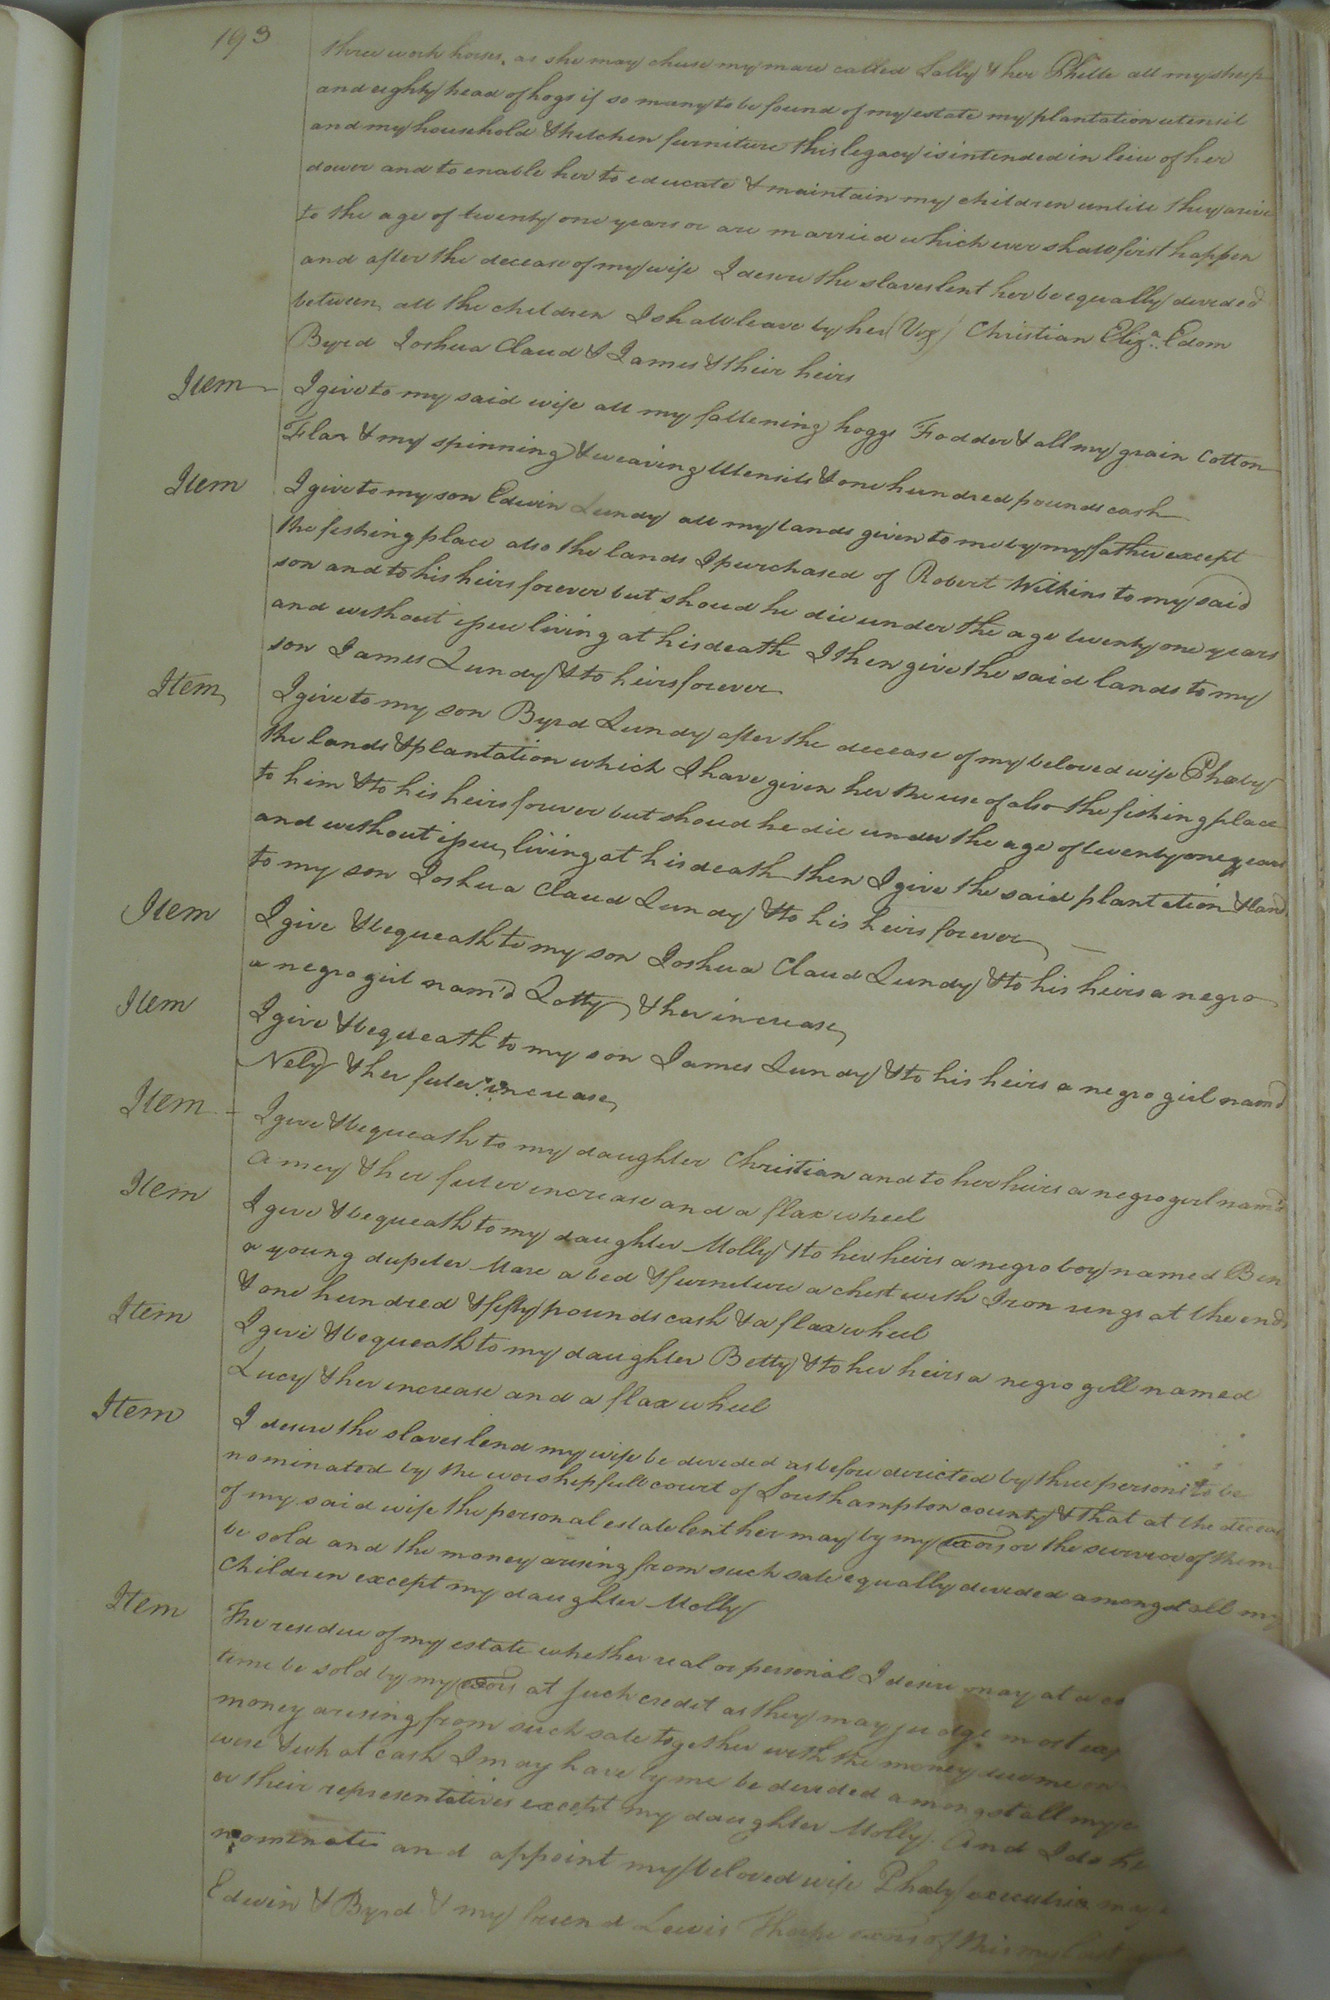 193
three work horses, as she may chuse my mare called Sally & her Phille all my sheep
and eighty head of hogs if so many to be found of my estate my plantation utensil
and my household & kitchen furniture this legacy is intended in lieu of her
dower and to enable her to educate & maintain my children untill they arive
to the age of twenty one years or are married which ever shall first happen
and after the decease of my wife I desire the slaves lent her be equally devided
between all the children I shall leave by her (Viz) Christian Eliza. Edom
Byrd Joshua Claud & James & their heirs
Item I give to my said wife all my fattening hoggs Fodder & all my grain Cotton
Flax & my spinning & weaving Utensils & one hundred pounds cash
Item I give to my son Edwin Lundy all my lands given to me by my father except
the fishing place also the lands I purchased of Robert Wilkins to my said
son and to his heirs forever but shoud he die under the age twenty one years
and without issue living at his death I then give the said lands to my
son James Lundy & to heirs forever
Item I give to my son Byrd Lundy after the decease of my beloved wife Phœby
the lands & plantation which I have given her the use of also the fishing place
to him & to his heirs forever but shoud he die under the age of twenty one years
and without issue living at his death then I give the said plantation & land
to my son Joshua Claud Lundy & to his heirs forever
Item I give & bequeath to my son Joshua Claud Lundy & to his heirs a negro
a negro girl nam'd Lotty & her increase
Item I give & bequeath to my son James Lundy & to his heirs a negro girl namd
Nely & her futer increase
Item I give & bequeath to my daughter Christian and to her heirs a negro girl nam'd
Amey & her futer increase and a flax wheel
Item I give & bequeath to my daughter Molly & to her heirs a negro boy named Ben
a young dupeter Mare a bed & furniture a chest with Iron rings at the ends
& one hundred & fifty pounds cash & a flax wheel
Item I give & bequeath to my daughter Betty & to her heirs a negro gill named
Lucy & her increase and a flax wheel
Item I desire the slaves lend my wife be devided as before dericted by three persons to be
nominated by the worshipfull court of Southampton county & that at the deceas
of my said wife the personal estate lent her may by my exors or the survivor of them
be sold and the money arising from such sale equally devided amongst all my
Children except my daughter Molly
Item The residue of my estate whether real or personial I desire may at a
time be sold by my exors at such credit as they may judge most
money arising from such sale together with the money due me on
were & what cash I may have by me be devided amongst all my
or their representatives except my daughter Molly. And I do
nominate and appoint my beloved wife Phœby executrix my
Edwin & Byrd & my friend Lewis Thorpe exors of this my last